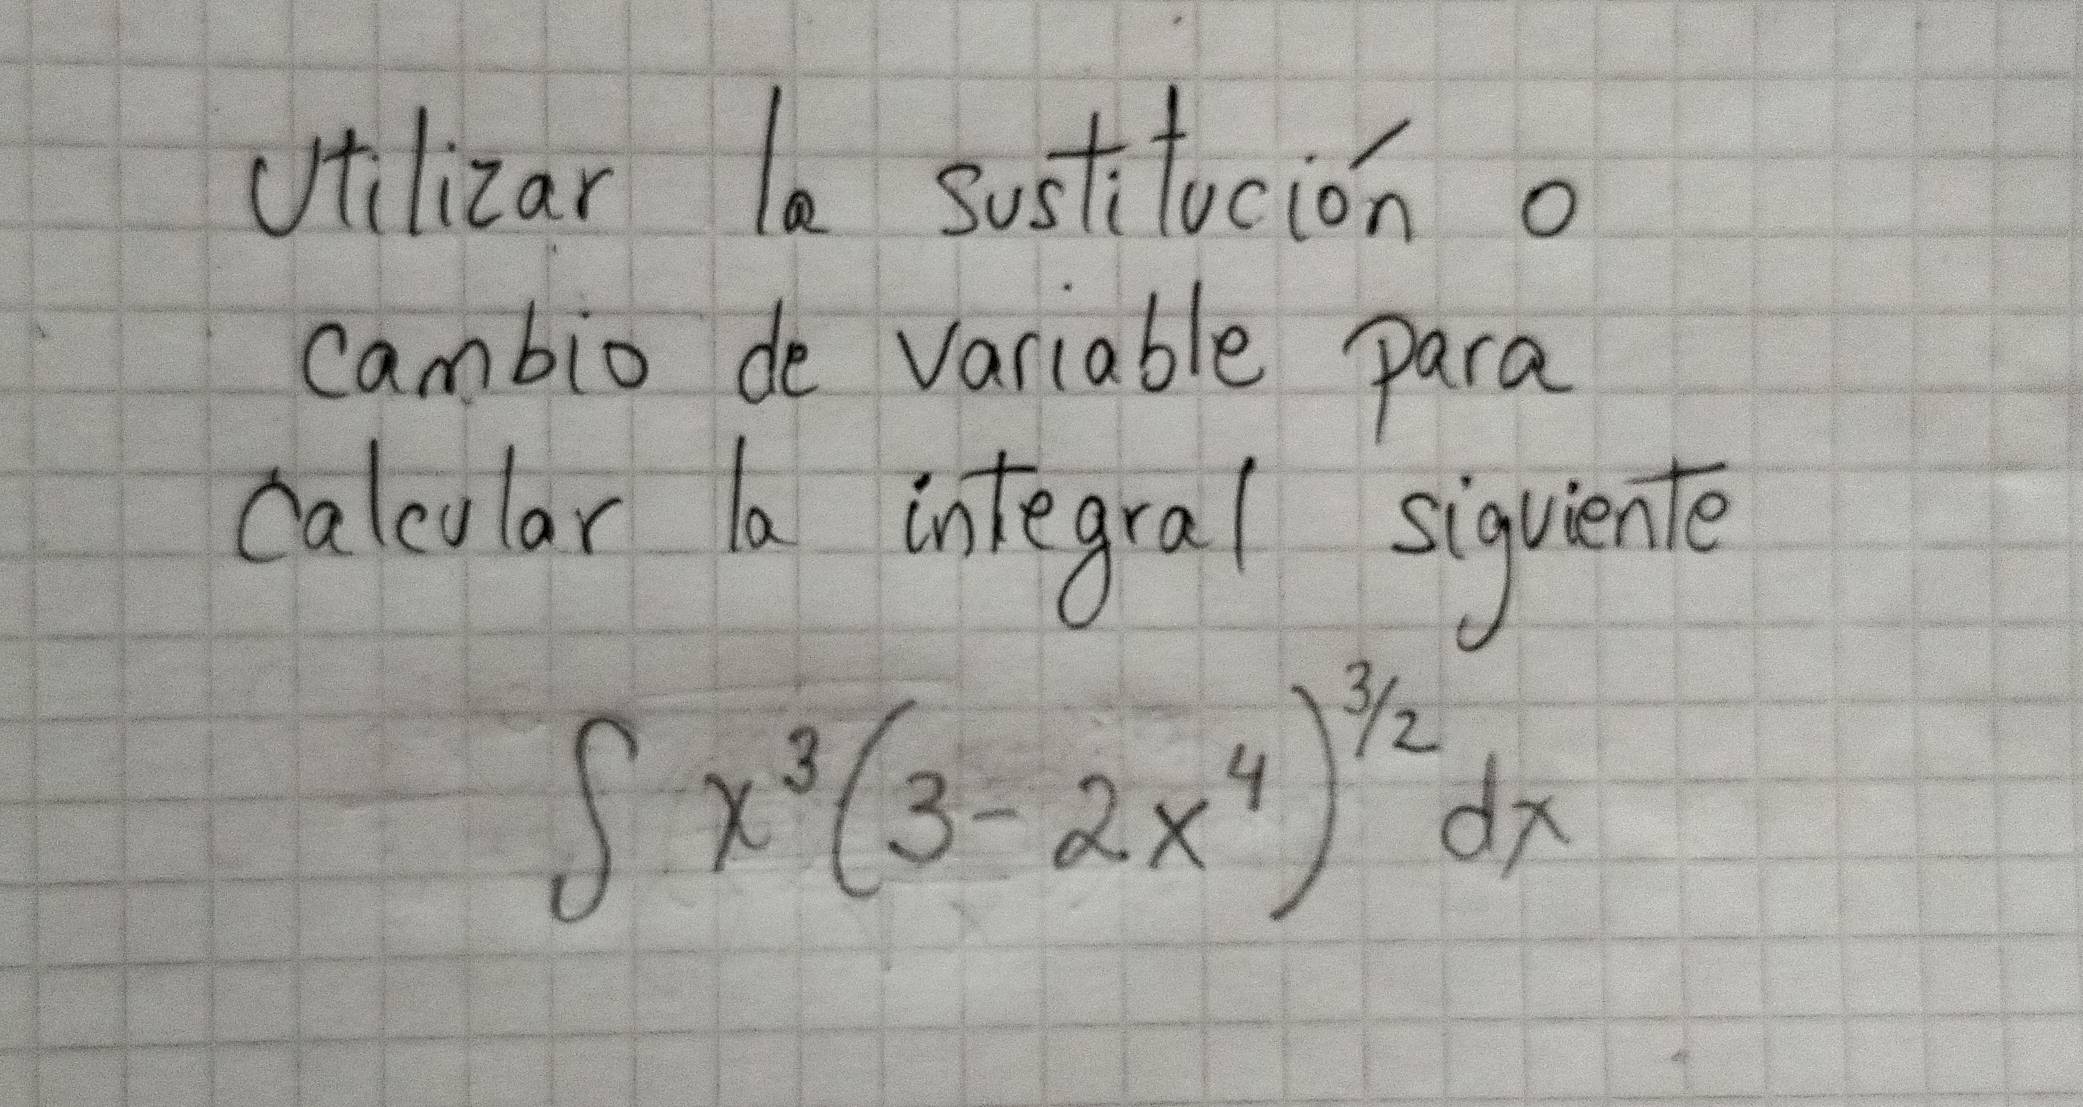 Utilizar la sustitución o
cambio de variable para
calcular la integral siguiente
∫ x³(3-2x⁴)^3/2 dx